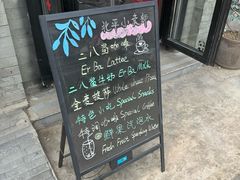 北平小卖部
二八酱咖啡
Er Ba Lattee
二八酱牛奶 Er Ba Milk
全麦披萨 Whole wheat Pizza
特色小吃 Special Snacks
特调咖啡 Special Coffee
鲜果气泡水
Fresh Fruit Sparkling Water